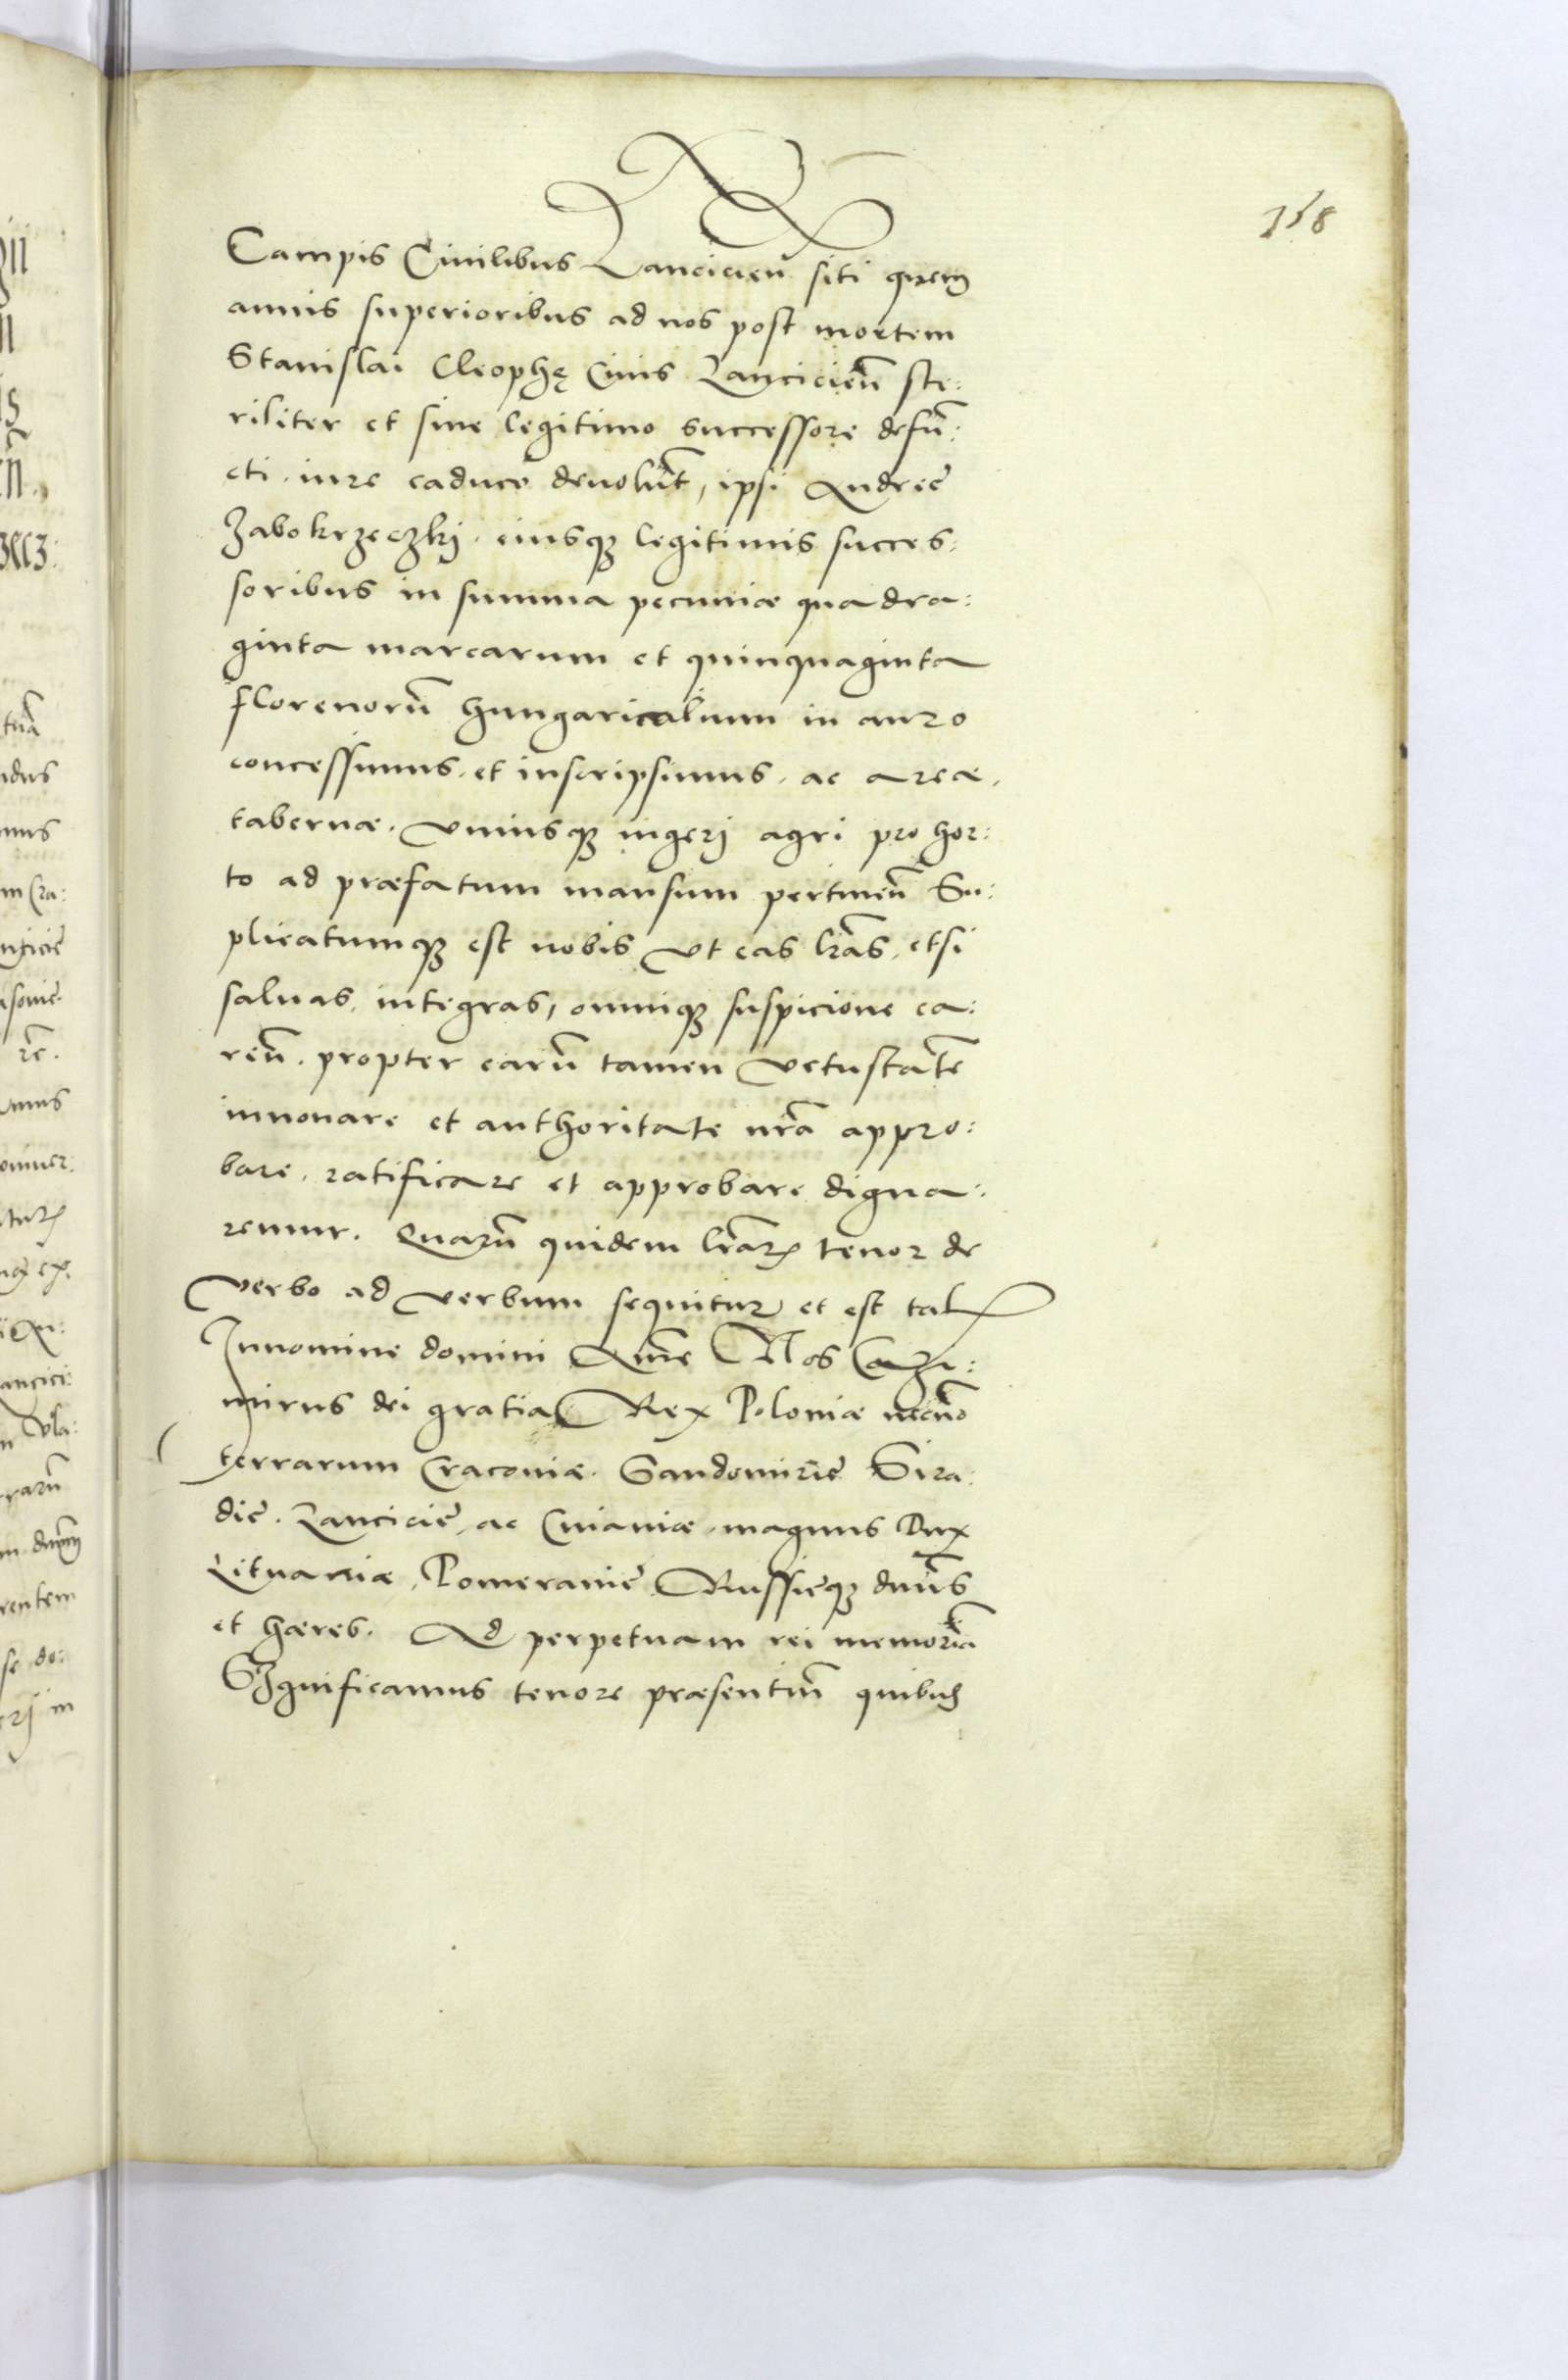 158
Campis Ciuilibus Lancicien̄ siti quem
annis superioribus ad nos post mortem
Stanislai Cleophę Ciuis Lancicien̄ ste:
riliter et sine legitimo successore defun̄:
cti. iure caduco deuolut̄, ipsi Andree
Zabokrzeczki. eiusq3 legitimis succes:
soribus in summa pecuniæ quadra:
ginta marcarum et quinquaginta
florenorū hungaricalium in auro
concessimus. et inscripsimus. ac areæ.
tabernæ. vniusq3 iugeri agri pro hor:
to ad præfatum mansum pertinen̄ Su:
plicatumq3 est nobis vt eas lr̄as, etsi
saluas, integras, omniq3 suspicione ca:
ren̄. propter earū tamen vetustatē
innouare et authoritate nr̄a appro:
bare, ratificare et approbare digna:
remur. Quarū quidem lr̄arꝝ tenor de
verbo ad verbum sequitur et est talꝭ
Innomine domini Amē Nos Cazi:
mirus dei gratia Rex Poloniæ necnō
terrarum Cracouiæ. Sandomirie Sira:
die. Lancicie, ac Cuiauiæ, magnus Dux
Lituaniæ, Pomeranie Russieq3 dn̄us
et hæres. Ad perpetuam rei memoriā
SIgnificamus tenore præsentiū quibus